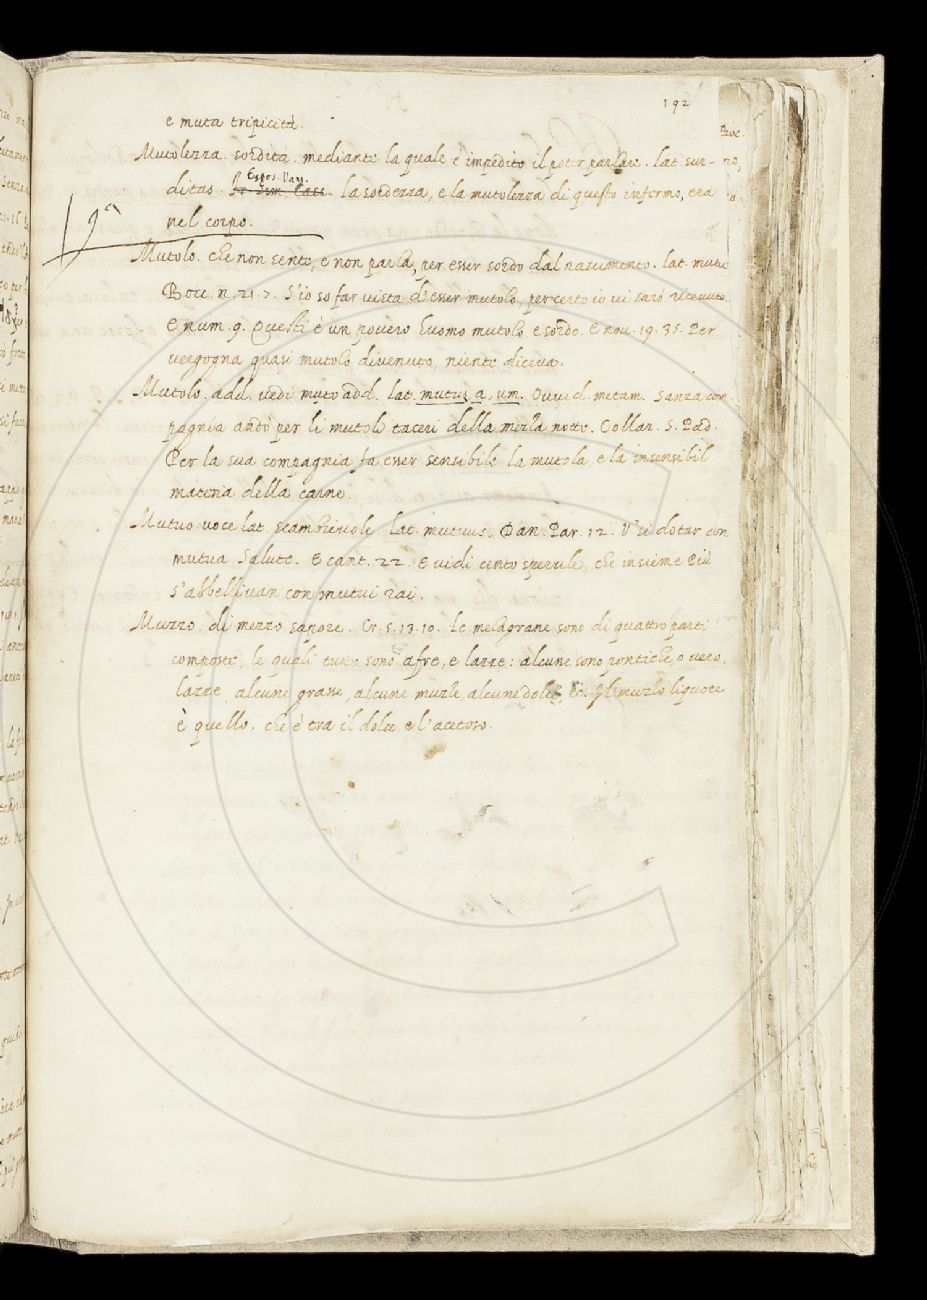 192
e muta tripicità.
Mutolezza. sordità. mediante la quale è impedito il poter parlare. lat. sur-
ditas. Espos. Vang. la sordezza, e la mutolezza di questo infermo, era
9a
nel corpo.
Mutolo. che non sente, e non parla, per esser sordo dal nascimento. lat. mutu
Bocc. n. 21. 7. S'io so far vista d'esser mutolo, per certo io vi sarò ricevuto.
E num. 9. Questi è un povero huomo mutolo e sordo. E nov. 19. 35. Per
vergogna quasi mutolo divenuto, niente diceva.
Mutolo. add. vedi muto add. lat. mutus, a, um. Ovvid. metam. Sanza com
pagnia andò per li mutoli taceri della mezla notte. Collaz. S. Pad.
Per la sua compagnia fa esser sensibile la mutola e la insensibil
materia della carne.
Mutuo voce lat. scambievole. lat. mutuus. Dan. Par. 12. U' si dotar con
mutua salute. E cant. 22. E vidi cento sperule, che insieme Più
s'abbellivan con mutui rai.
Muzzo. di mezzo sapore. Cr. 5. 13. 10. Le melagrane sono di quattro parti
composte, le quali tutte sono afre, e lazze: alcune sono pontiche, o vero
lazze, alcune grasse, alcune muzle, alcune dolci, ec. Il muzlo liquore
è quello, che è tra il dolce, e l'acetoso.